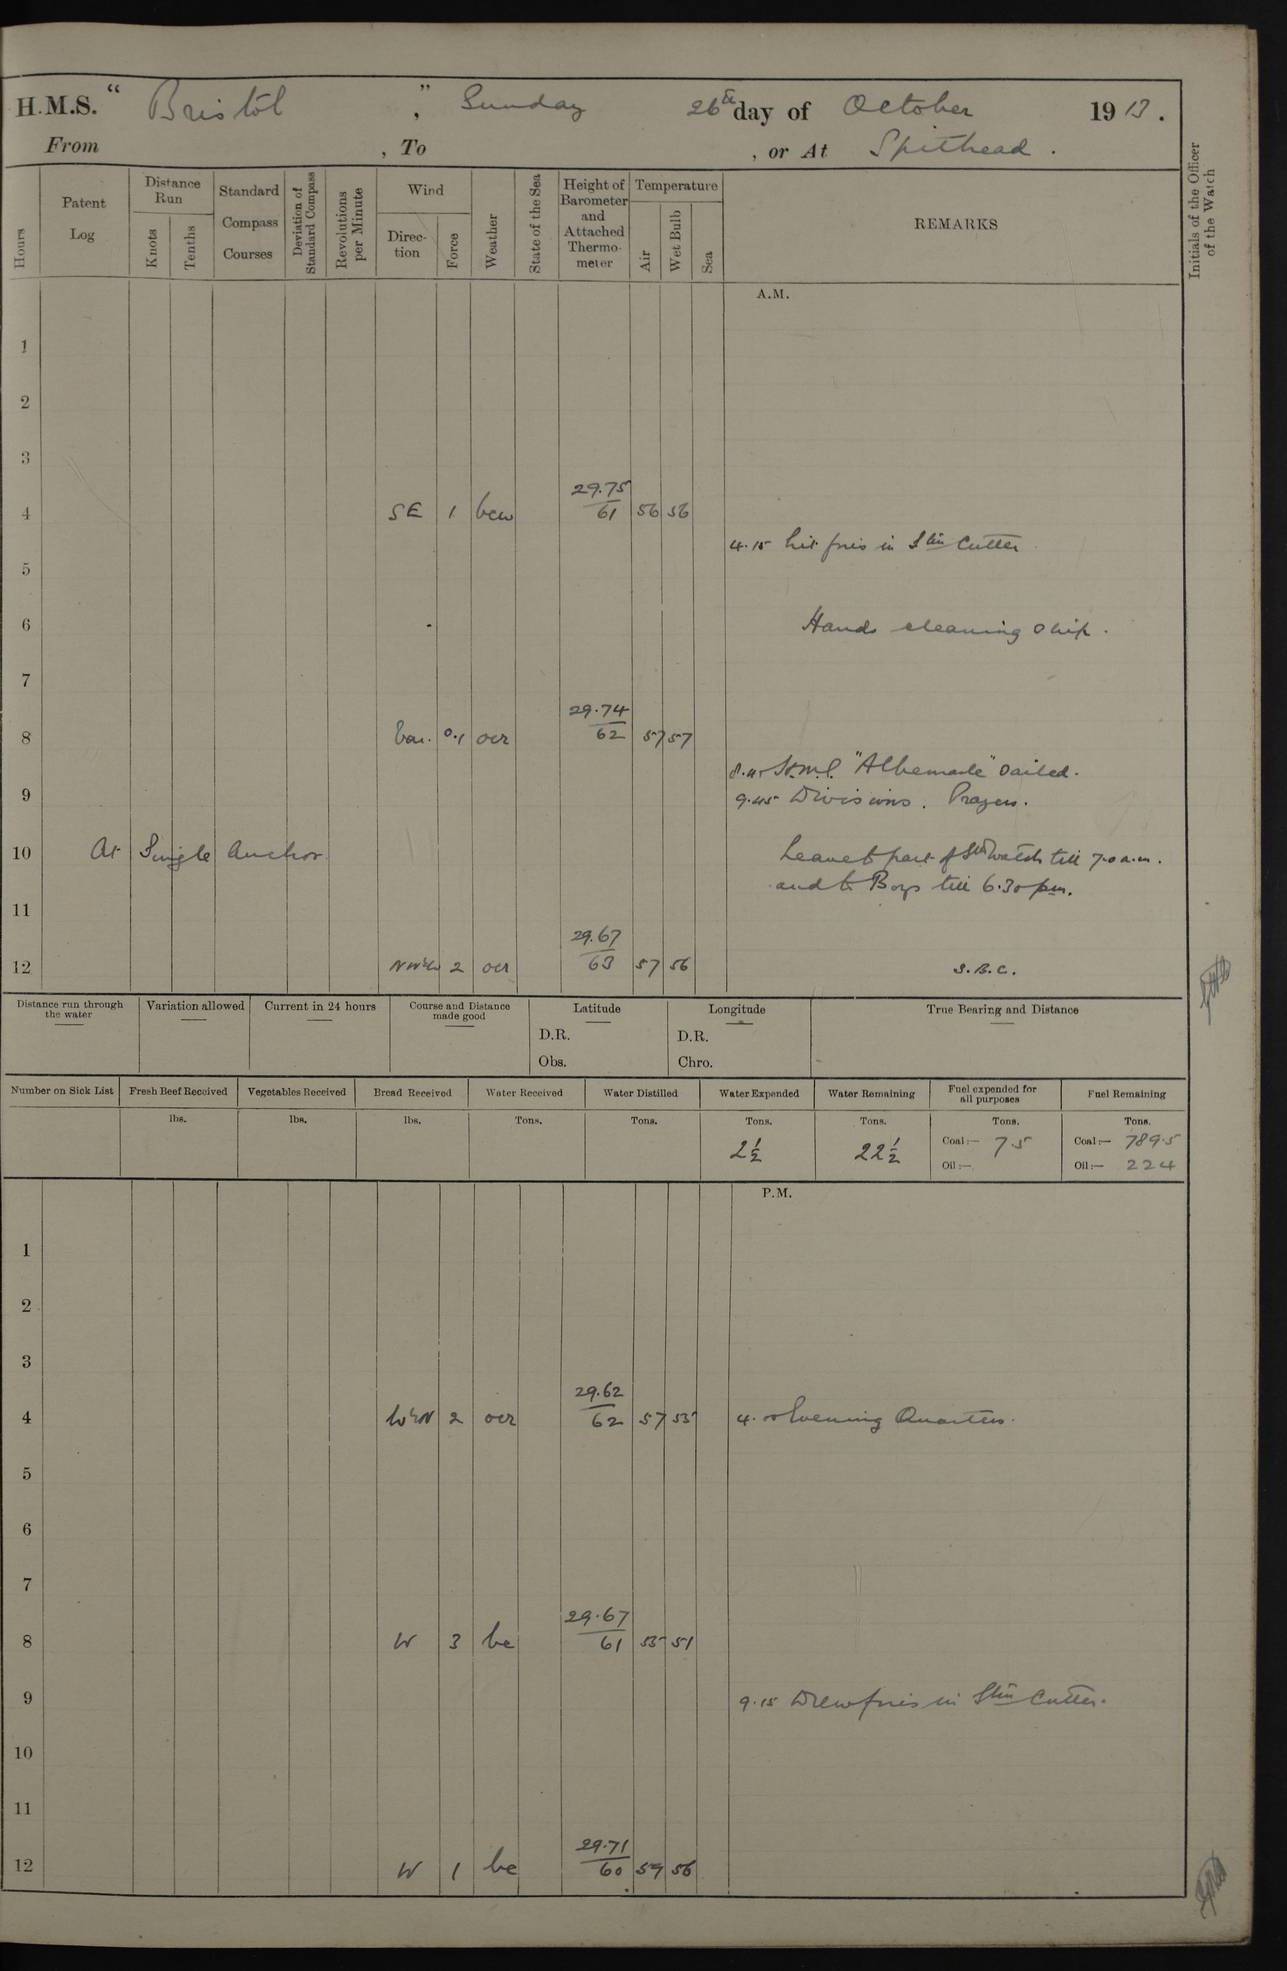 H.M.S. “ Bristol ” , Sunday 26th day of October 1913.
From , To , or At Spithead .
Hours
Patent Log
Distance Run
Knots
Tenths
Standard Compass Courses
Deviation of Standard Compass
Revolutions per Minute
Wind
Direction
Force
Weather
State of the Sea
Height of Barometer and Attached Thermometer
Temperature
Air
Wet Bulb
Sea
REMARKS
Initials of the Officer of the Watch
A.M.
1
2
3
4 SE 1 bcw 29.75 61 56 56
4.15 Lit fires in Stm Cutter
5
6 Hands cleaning Ship.
7
8 Var. 0.1 ocr 29.74 62 57 57
H.M.S. "Albemarle" Sailed.
9
9.45 Divisions. Prayers.
10 At Single Anchor Leave to part of watch till 7.0 a.m.
and to Boys till 6.30 pm.
11
12 2 ocr 29.67 63 57 56 S.B.C.
Distance run through the water
Variation allowed
Current in 24 hours
Course and Distance made good
Latitude
D.R.
Obs.
Longitude
D.R.
Chro.
True Bearing and Distance
Number on Sick List
Fresh Beef Received
Vegetables Received
Bread Received
Water Received
Water Distilled
Water Expended
Water Remaining
Fuel expended for all purposes
Fuel Remaining
lbs. lbs. lbs. Tons. Tons. Tons. Tons. Tons. Tons.
2½ 22½ Coal:— 7.5 Coal:— 789.5
Oil:— Oil:— 224
P.M.
1
2
3
4 WbN 2 ocr 29.62 62 57 55 4.0 Evening Quarters.
5
6
7
8 W 3 bc 29.67 61 55 51
9 9.15 Drew fires in Stm Cutter.
10
11
12 W 1 bc 29.71 60 59 56